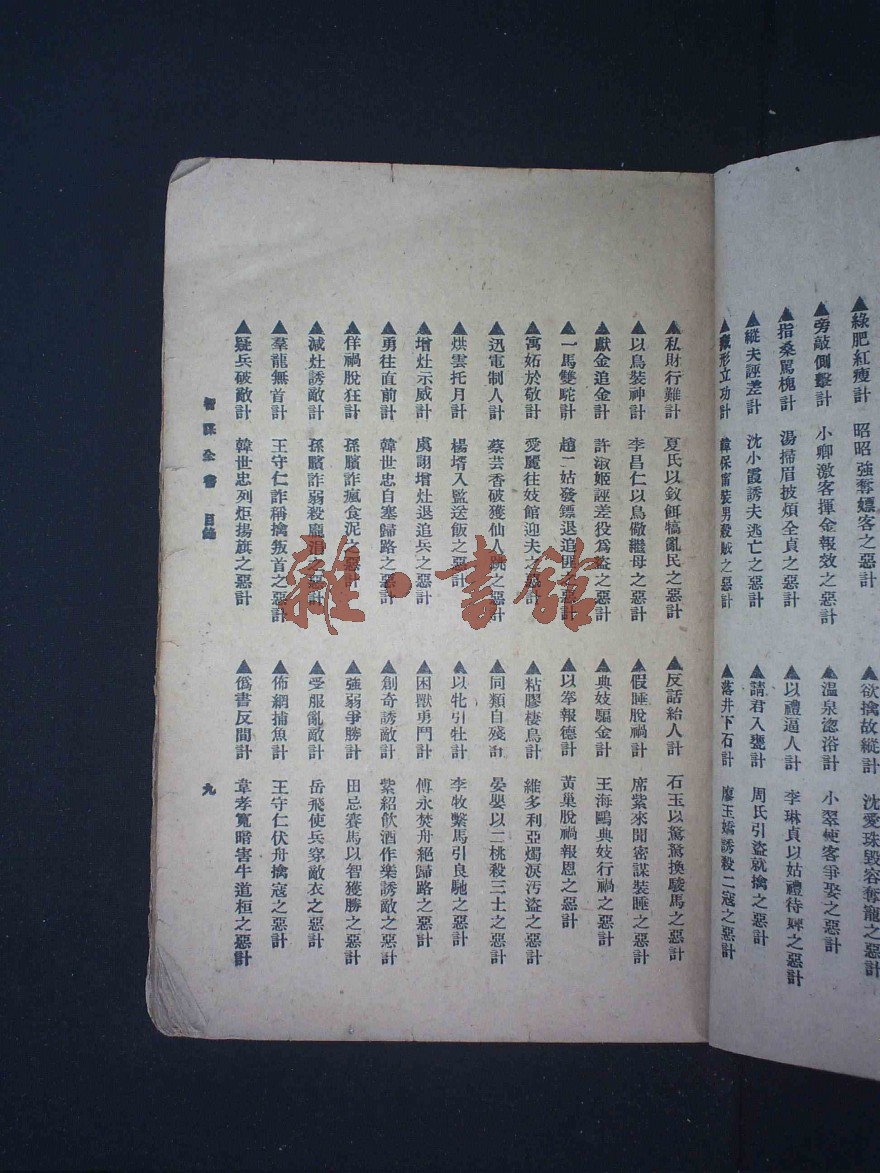 綠肥紅瘦計 昭昭強奪嫖客之惡計
欲擒故縱計 沈愛珠毀容奪寵之惡計
旁敲側擊計 小卿激客揮金報效之惡計
溫泉浴計 小翠使客爭娶之惡計
指桑罵槐計 湯掃眉披煩全貞之惡計
以禮逼人計 李琳貞以姑禮待婢之惡計
縱夫誣差計 沈小霞誘夫逃亡之惡計
請君入甕計 周氏引盜就擒之惡計
形立功計 韓保甯裝男殺賊之惡計
落井下石計 廖玉嬌誘殺二寇之惡計
私財行難計 夏氏以釵餌犒亂民之惡計
反話紿人計 石玉以驚換駿馬之惡計
以鳥裝神計 李昌仁以鳥儆繼母之惡計
假睡脫禍計 席紫來聞密謀裝睡之惡計
獻金追金計 許淑姬誣差役爲盜之惡計
典妓騙金計 王海鷗典妓行禍之惡計
一馬雙駝計 趙二姑發鏢退追匪之惡計
以拳報德計 黃巢脫禍報恩之惡計
寓妬於敬計 愛麗往妓館迎夫之惡計
粘膠棲鳥計 維多利亞燭淚汚盜之惡計
迅電制人計 蔡芸香破獲仙人跳之惡計
同類自殘計 晏嬰以二桃殺三士之惡計
烘雲托月計 楊壻入監送飯之惡計
以牝引牡計 李牧繫馬引良馳之惡計
增灶示威計 虞詡增灶退追兵之惡計
困獸勇鬥計 傅永焚舟絕歸路之惡計
勇往直前計 韓世忠自塞歸路之惡計
創奇誘敵計 紫紹飲酒作樂誘敵之惡計
佯禍脫狂計 孫臏詐瘋食泥之惡計
強弱爭勝計 田忌賽馬以智獲勝之惡計
減灶誘敵計 孫臏詐弱殺龐涓之惡計
受服亂敵計 岳飛使兵穿敵衣之惡計
羣龍無首計 王守仁詐稱擒叛首之惡計
佈網捕魚計 王守仁伏舟擒寇之惡計
疑兵破敵計 韓世忠列炬揚旗之惡計
僞書反間計 韋孝寬暗害牛道桓之惡計
智謀全書 目錄 九
雜·書館